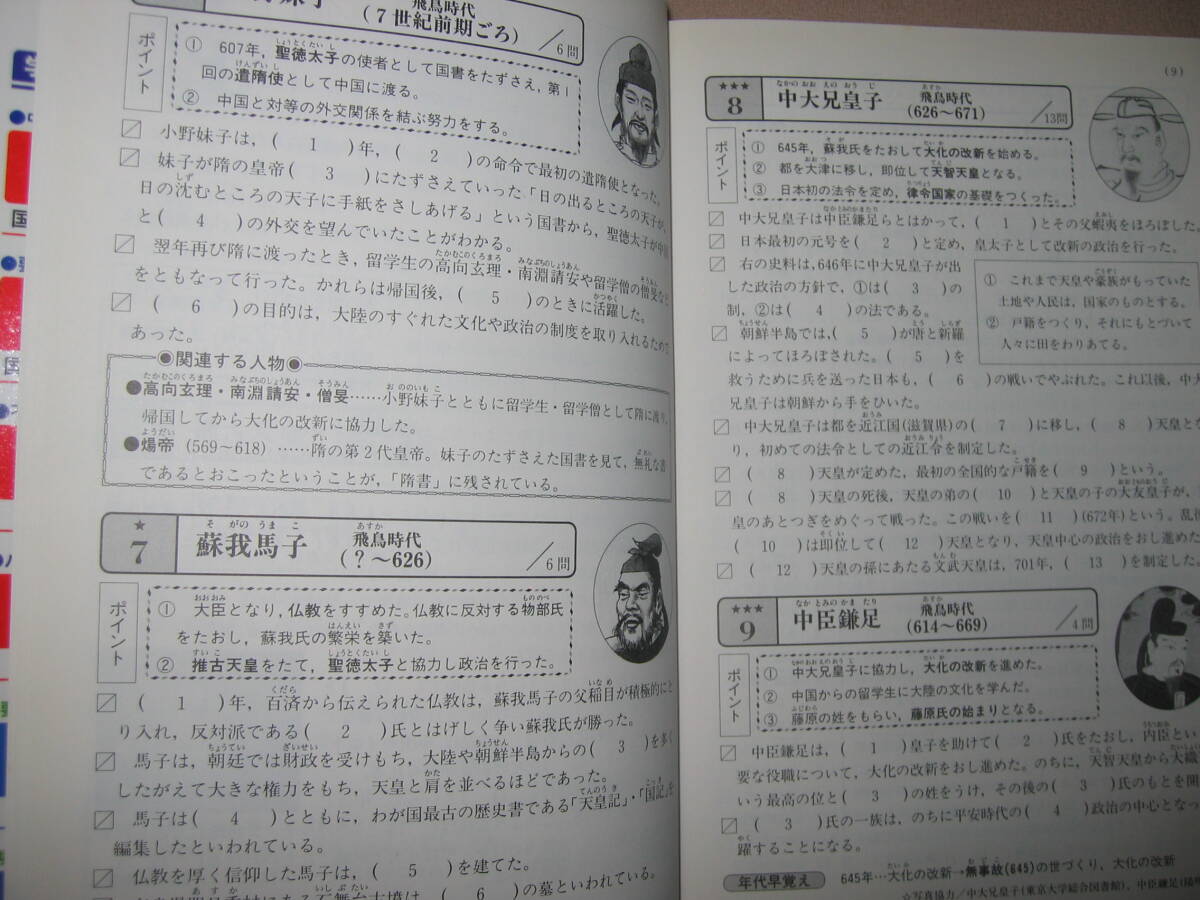 飛鳥時代
(7世紀前期ごろ)
/6問
ポイント
① 607年，聖徳太子の使者として国書をたずさえ，第1
回の遣隋使として中国に渡る。
② 中国と対等の外交関係を結ぶ努力をする。
小野妹子は，( 1 )年，( 2 )の命令で最初の遣隋使となった。
妹子が隋の皇帝( 3 )にたずさえていった「日の出るところの天子が，
日の沈むところの天子に手紙をさしあげる」という国書から，聖徳太子が中国
と( 4 )の外交を望んでいたことがわかる。
翌年再び隋に渡ったとき，留学生の高向玄理・南淵請安や留学僧の僧旻など
をともなって行った。かれらは帰国後，( 5 )のときに活躍した。
( 6 )の目的は，大陸のすぐれた文化や政治の制度を取り入れるためで
あった。
関連する人物
●高向玄理・南淵請安・僧旻……小野妹子とともに留学生・留学僧として隋に渡り，
帰国してから大化の改新に協力した。
●煬帝 (569～618) ……隋の第2代皇帝。妹子のたずさえた国書を見て，無礼な
であるとおこったということが，「隋書」に残されている。
★
7
蘇我馬子
飛鳥時代
(？～626)
/6問
ポイント
① 大臣となり，仏教をすすめた。仏教に反対する物部氏
をたおし，蘇我氏の繁栄を築いた。
② 推古天皇をたて，聖徳太子と協力し政治を行った。
( 1 )年，百済から伝えられた仏教は，蘇我馬子の父稲目が積極的にと
り入れ，反対派である( 2 )氏とはげしく争い蘇我氏が勝った。
馬子は，朝廷では財政を受けもち，大陸や朝鮮半島からの( 3 )を多く
したがえて大きな権力をもち，天皇と肩を並べるほどであった。
馬子は( 4 )とともに，わが国最古の歴史書である「天皇記」・「国記」を
編集したといわれている。
仏教を厚く信仰した馬子は，( 5 )を建てた。
にある石舞台古墳は，( 6 )の墓といわれている。
(9)
★★★
8
中大兄皇子
飛鳥時代
(626～671)
/13問
ポイント
① 645年，蘇我氏をたおして大化の改新を始める。
② 都を大津に移し，即位して天智天皇となる。
③ 日本初の法令を定め，律令国家の基礎をつくった。
中大兄皇子は中臣鎌足らとはかって，( 1 )とその父蝦夷をほろぼした。
日本最初の元号を( 2 )と定め，皇太子として改新の政治を行った。
右の史料は，646年に中大兄皇子が出
した政治の方針で，①は( 3 )の
制，②は( 4 )の法である。
① これまで天皇や豪族がもっていた
土地や人民は，国家のものとする。
② 戸籍をつくり，それにもとづいて
人々に田をわりあてる。
朝鮮半島では，( 5 )が唐と新羅
によってほろぼされた。( 5 )を
救うために兵を送った日本も，( 6 )の戦いでやぶれた。これ以後，中大
兄皇子は朝鮮から手をひいた。
中大兄皇子は都を近江国(滋賀県)の( 7 )に移し，( 8 )天皇とな
り，初めての法令としての近江令を制定した。
( 8 )天皇が定めた，最初の全国的な戸籍を( 9 )という。
( 8 )天皇の死後，天皇の弟の( 10 )と天皇の子の大友皇子が，
皇のあとつぎをめぐって戦った。この戦いを( 11 )(672年)という。乱後
( 10 )は即位して( 12 )天皇となり，天皇中心の政治をおし進めた
( 12 )天皇の孫にあたる文武天皇は，701年，( 13 )を制定した。
★★★
9
中臣鎌足
飛鳥時代
(614～669)
/4問
ポイント
① 中大兄皇子に協力し，大化の改新を進めた。
② 中国からの留学生に大陸の文化を学んだ。
③ 藤原の姓をもらい，藤原氏の始まりとなる。
中臣鎌足は，( 1 )皇子を助けて( 2 )氏をたおし，内臣とい
要な役職について，大化の改新をおし進めた。のちに，天智天皇から大織
いう最高の位と( 3 )の姓をうけ，その後の( 3 )氏のもとを開
( 3 )氏の一族は，のちに平安時代の( 4 )政治の中心となっ
躍することになる。
年代早覚え
645年…大化の改新→無事故(645)の世づくり，大化の改新
☆写真協力／中大兄皇子(東京大学総合図書館)，中臣鎌足